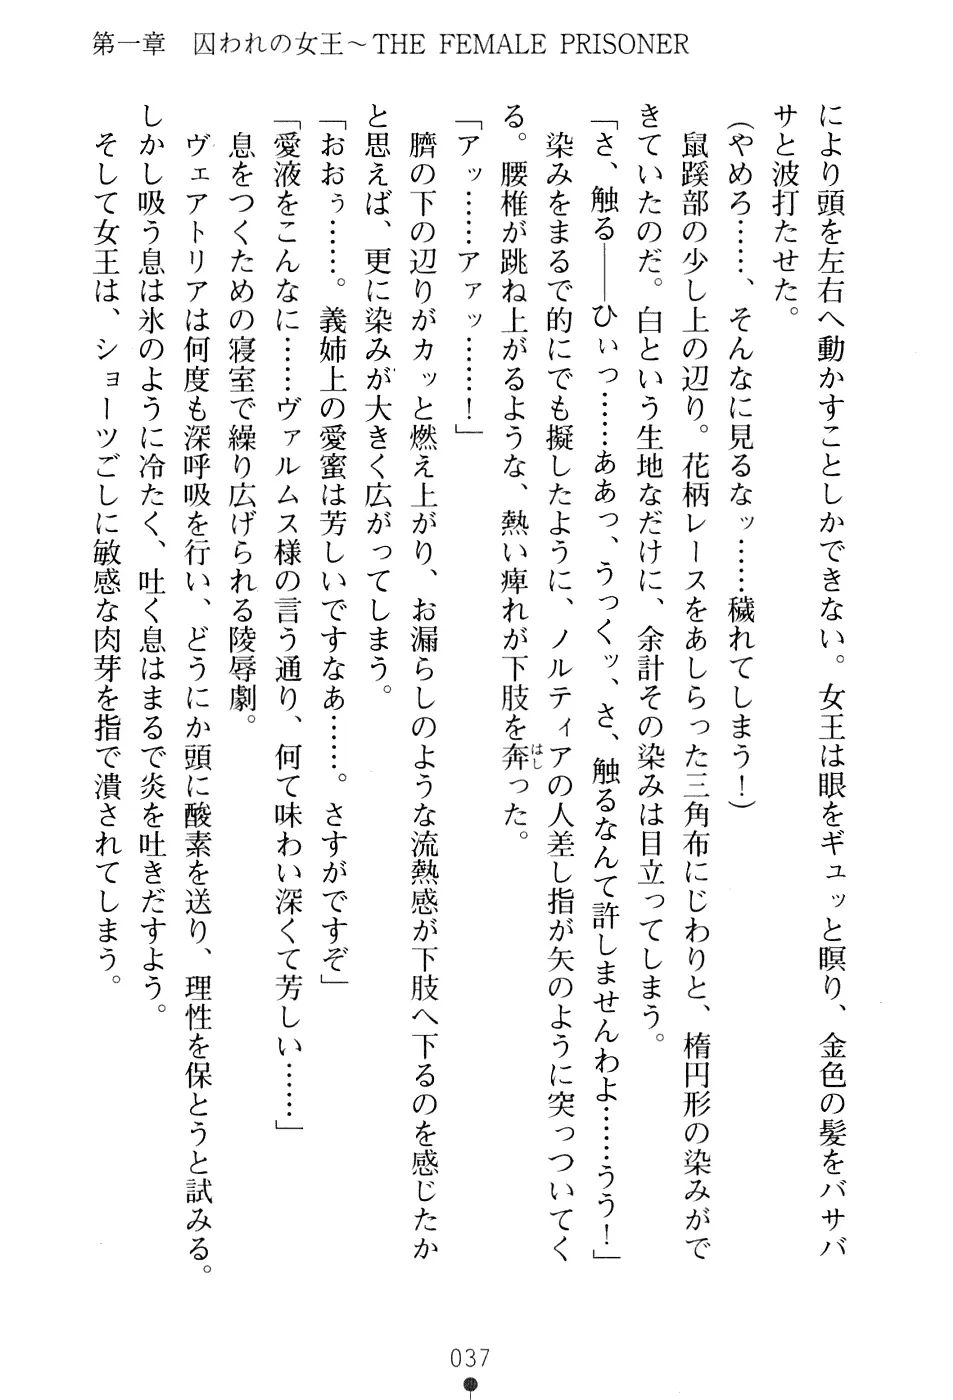 第一章　囚われの女王～THE FEMALE PRISONER
により頭を左右へ動かすことしかできない。女王は眼をギュッと瞑り、金色の髪をバサバ
サと波打たせた。
（やめろ……、そんなに見るなッ……穢れてしまう！）
鼠蹊部の少し上の辺り。花柄レースをあしらった三角布にじわりと、楕円形の染みがで
きていたのだ。白という生地なだけに、余計その染みは目立ってしまう。
「さ、触る――ひぃっ……ああっ、うっくッ、さ、触るなんて許しませんわよ……うう！」
染みをまるで的にでも擬したように、ノルティアの人差し指が矢のように突っついてく
る。腰椎が跳ね上がるような、熱い痺れが下肢を奔はしった。
「アッ……アァッ……！」
臍の下の辺りがカッと燃え上がり、お漏らしのような流熱感が下肢へ下るのを感じたか
と思えば、更に染みが大きく広がってしまう。
「おおぅ……。義姉上の愛蜜は芳しいですなぁ……。さすがですぞ」
「愛液をこんなに……ヴァルムス様の言う通り、何て味わい深くて芳しい……」
息をつくための寝室で繰り広げられる陵辱劇。
ヴェアトリアは何度も深呼吸を行い、どうにか頭に酸素を送り、理性を保とうと試みる。
しかし吸う息は氷のように冷たく、吐く息はまるで炎を吐きだすよう。
そして女王は、ショーツごしに敏感な肉芽を指で潰されてしまう。
037